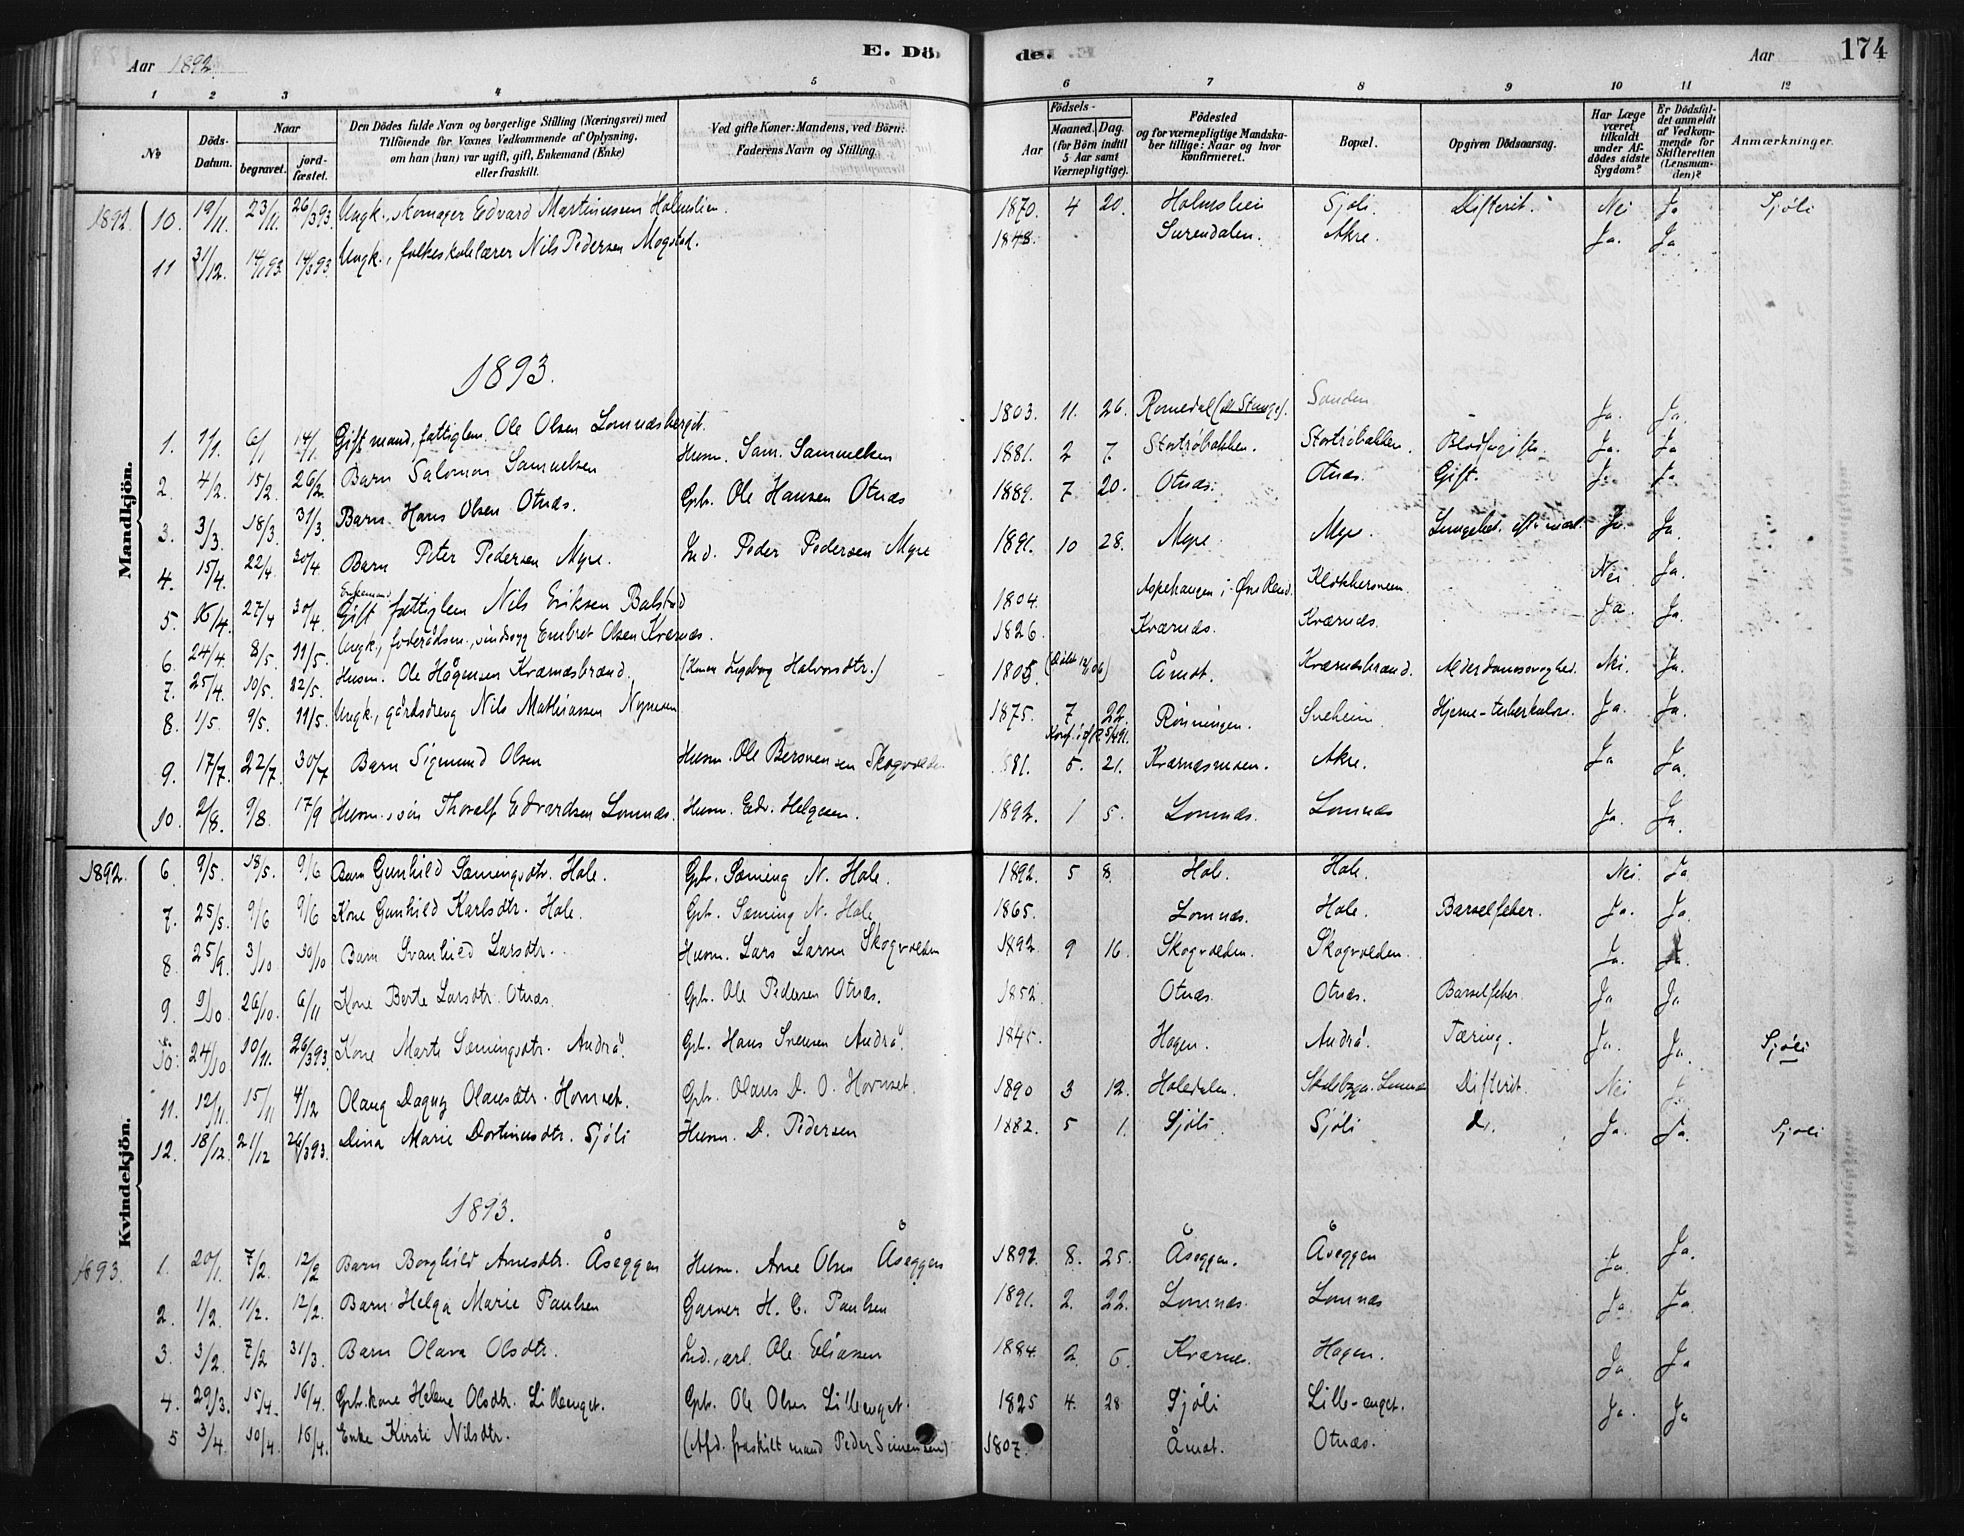 Aar 1892. E. Dö- de. E. Aar 174
1 2 3 4 5 6 7 8 9 10 11 12
№ Döds-Datum. Naar begravet. jord-fæstet. Den Dödes fulde Navn og borgerlige Stilling (Næringsvei) med Tilföiende for Voxnes Vedkommende af Oplysning, om han (hun) var ugift, gift, Enkemand (Enke) eller fraskilt. Ved gifte Koner: Mandens, ved Börn: Faderens Navn og Stilling. Aar Födsels- Maaned. Dag. (for Börn indtil 5 Aar samt Værnepligtige). Födested og for værnepligtige Mandskaber tillige: Naar og hvor konfirmeret. Bopæl. Opgiven Dödsaarsag. Har Læge været tilkaldt under Afdödes sidste Sygdom? Er Dödsfaldet anmeldt af Vedkommende for Skifteretten (Lensmanden)? Anmærkninger.
Mandkjön.
1892. 10. 19/11. 23/11. 26/3 93. Ungk., skomager Edvard Martinusen Holmslien. 1870. 4 20. Holmslien Sjöli. Difterit. Nei Ja Sjöli
11 31/12. 14/1 93. 14/3 93. Ungk., folkeskolelærer Nils Pedersen Mogstad. 1848. Surendalen. Akre. Ja. Ja
1893.
1. 1/1. 6/1 14/1. Gift mand, fattiglem Ole Olsen Lomnæsberget. 1803. 11. 26. Romedal (Stange). Sanden Ja. Ja.
2. 4/2. 15/2. 26/2. Barn Salomon Samuelsen Husm. Sam. Samuelsen 1881. 2 7 Stortröbakken. Stortröbakken. Blodforgiftn. Ja. Ja
3. 3/3. 18/3. 31/3. Barn Hans Olsen Otnæs. Gbr. Ole Hansen Otnæs 1889. 7 20. Otnæs. Otnæs. Gift. Ja. Ja
4. 15/4. 22/4. 30/4. Barn Peter Pedersen Myre. Ind. Peder Pedersen Myre 1891. 10 28. Myre. Myre. Ja. Ja.
5. 16/4. 27/4 30/4. Enkemand Gift fattiglem Nils Eriksen Balstad 1804. Aspehaugen i Övre Rend. Klokkersveen. Nei Ja.
6. 24/4. 8/5. 11/5. Ungk., föderådsm., sindssyg Embret Olsen Kværnæs. 1826. Kværnæs. Kværnæs. Ja. Ja.
7. 25/4. 10/5. 22/5. Husm. Ole Hågensen Kværnæsbrænd. (Konen Ingeborg Halvorsdtr.) 1805. Åmot. Kværnæsbrænd. Alderdomssvaghed. Nei. Ja.
8. 1/5. 9/5. 11/5. Ungk., gårdsdreng Nils Mathiassen Nymoen 1875. 7 22. Rönningen. Sveheim Hjerne-tuberkulose. Ja. Ja.
9. 17/7. 22/7. 30/7 Barn Sigmund Olsen Husm. Ole Bersvensen Skogvolden 1881. 5. 21. Kværnæsmoen. Akre. Ja Ja.
10. 2/8. 9/8. 17/9 Husm.sön Thoralf Edvardsen Lomnæs. Husm. Edv. Helgesen. 1892. 1 5. Lomnæs. Lomnæs Ja. Ja.
Kvindekjön.
1892. 6. 9/5. 18/5. 9/6 Barn Gunhild Sæmingsdtr. Hole. Gbr. Sæming N. Hole. 1892. 5 8. Hole. Hole. Nei. Ja.
7. 25/5. 9/6 9/6 Kone Gunhild Karlsdtr. Hole. Gbr. Sæming N. Hole 1865. Lomnæs. Hole. Barselfeber. Ja. Ja.
8. 25/9. 3/10 30/10 Barn Svanhild Larsdtr. Husm. Lars Larsen Skogvolden 1892 9 16. Skogvolden. Skogvolden. Ja. Ja.
9. 9/10. 26/10. 6/11 Kone Berte Larsdtr. Otnæs. Gbr. Ole Pedersen Otnæs. 1852. Otnæs. Otnæs. Barselfeber. Ja Ja
10. 24/10 10/11. 26/3 93. Kone Marte Sæmingsdtr. Andrå. Gbr. Hans Svensen Andrå. 1845. Hagen. Andrå. Tæring. Ja. Ja. Sjöli
11. 12/11. 15/11 4/12 Olaug Dagny Olausdtr. Hornset. Gbr. Olaus D. O. Hornset. 1890 3 12. Holedalen. Difterit. Nei
12. 18/12. 21/12 26/3 93. Dina Marie Dortinusdtr. Sjöli Husm. D. Pedersen 1882. 5 1. Sjöli. Sjöli d. Ja. Ja. Sjöli
1893.
1893. 1. 20/1. 7/2. 12/2 Barn Borghild Arnesdtr. Åseggen Husm. Arne Olsen Åseggen 1892. 8. 25. Åseggen. Åseggen Ja. Ja.
2. 1/2. 11/2. 12/2. Barn Helga Marie Paulsen Garver H. C. Paulsen 1891. 2. 22. Lomnæs. Lomnæs Ja. Ja.
3. 3/2. 7/2 31/3. Barn Olava Olsdtr. Ind., arb. Ole Eliassen 1884. 2. 6. Kværnes. Hagen. Ja Ja
4. 29/3. 15/4. 16/4. Gbr.kone Helene Olsdtr. Lilleenget. Gbr. Ole Olsen Lilleenget. 1825 4. 28 Sjöli Lille-enget. Ja. Ja
5 3/4. 10/4. 16/4. Enke Kirsti Nilsdtr. (Afd. fraskilt mand Peder Simensen) 1807. Åmot. Otnæs.